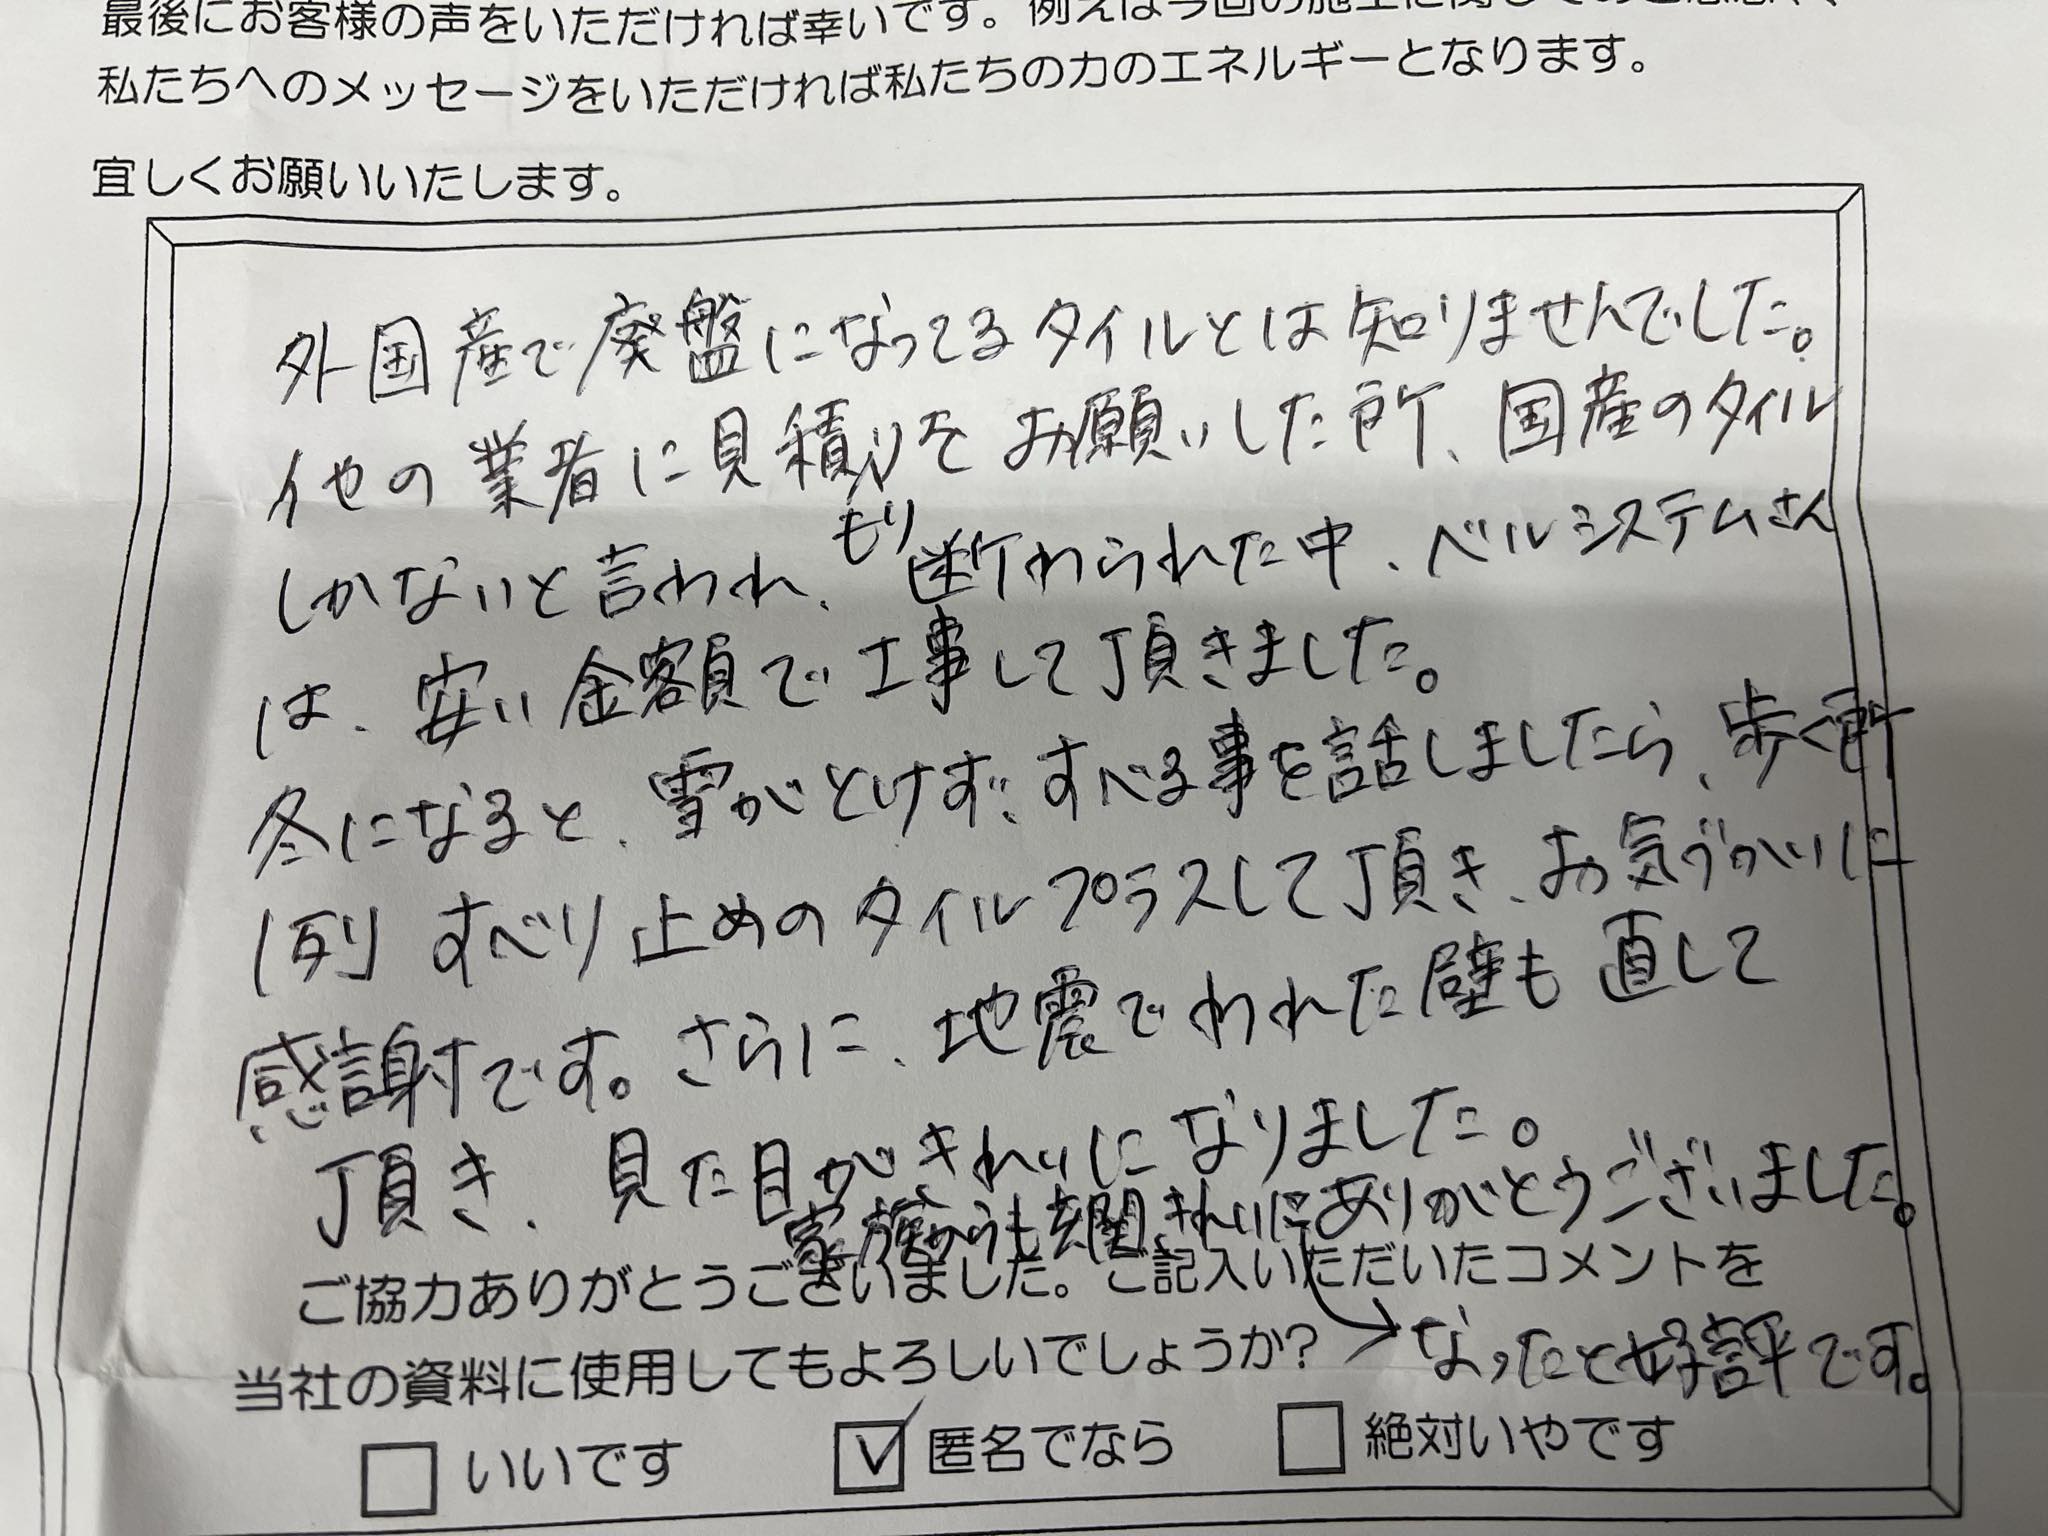 最後にお客様の声をいただければ幸いです。例えば今回の施工に関して
私たちへのメッセージをいただければ私たちの力のエネルギーとなります。
宜しくお願いいたします。
外国産で廃盤になってるタイルとは知りませんでした。
他の業者に見積りをお願いした所、国産のタイル
もり
しかないと言われ、断わられた中、ベルシステムさん
は、安い金額で工事して頂きました。
冬になると、雪がとけず、すべる事を話しましたら、歩く所
1列すべり止めのタイルプラスして頂き、お気づかいに
感謝です。さらに、地震でわれた壁も直して
頂き、見た目がきれいになりました。
家族からも玄関きれいにありがとうございました。
ご協力ありがとうございました。ご記入いただいたコメントを
当社の資料に使用してもよろしいでしょうか?→なったと好評です。
いいです 匿名でなら 絶対いやです